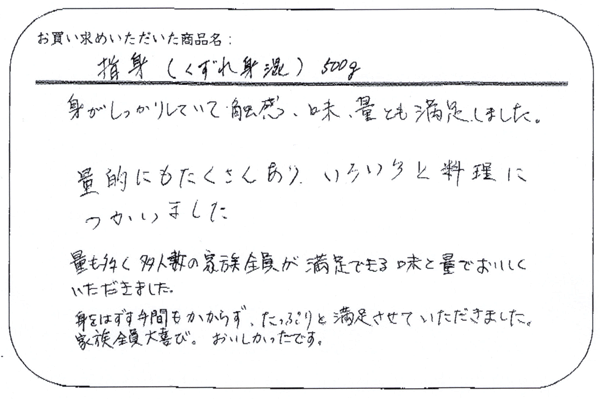 お買い求めいただいた商品名：
指身（くずれ身混）500g
身がしっかりしていて触感、味、量とも満足しました。
量的にもたくさんあり、いろいろと料理に
つかいました
量も多く多人数の家族全員が満足できる味と量でおいしく
いただきました。
身をはずす手間もかからず、たっぷりと満足させていただきました。
家族全員大喜び。おいしかったです。